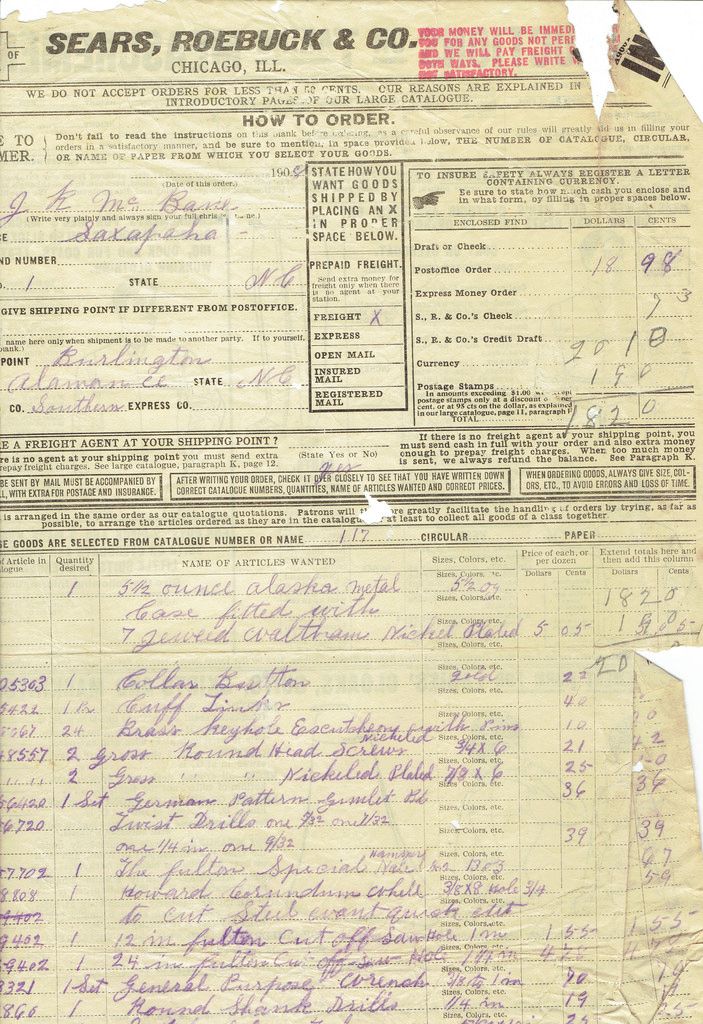 OF
SEARS, ROEBUCK & CO.
CHICAGO, ILL.
YOUR MONEY WILL BE IMMEDI
YOU FOR ANY GOODS NOT PERF
AND WE WILL PAY FREIGHT O
BOTH WAYS. PLEASE WRITE
NOT SATISFACTORY.
IN
WE DO NOT ACCEPT ORDERS FOR LESS THAN 50 CENTS. OUR REASONS ARE EXPLAINED IN
INTRODUCTORY PAGES OF OUR LARGE CATALOGUE.
HOW TO ORDER.
E TO
MER.
Don't fail to read the instructions on this blank before ordering, as a careful observance of our rules will greatly aid us in filling your
orders in a satisfactory manner, and be sure to mention, in space provided below, THE NUMBER OF CATALOGUE, CIRCULAR,
OR NAME OF PAPER FROM WHICH YOU SELECT YOUR GOODS.
190
(Date of this order.)
J R Mc Bane
(Write very plainly and always sign your full chris ne.)
CE Saxapaha
ND NUMBER
1 STATE N C
GIVE SHIPPING POINT IF DIFFERENT FROM POSTOFFICE.
name here only when shipment is to be made to another party. If to yourself,
blank.)
POINT Burlington
Alamance STATE N C
CO. Southern EXPRESS CO.
STATE HOW YOU
WANT GOODS
SHIPPED BY
PLACING AN X
IN PROPER
SPACE BELOW.
PREPAID FREIGHT.
Send extra money for
freight only when there
is no agent at your
station.
FREIGHT X
EXPRESS
OPEN MAIL
INSURED
MAIL
REGISTERED
MAIL
TO INSURE SAFETY ALWAYS REGISTER A LETTER
CONTAINING CURRENCY.
Be sure to state how much cash you enclose and
in what form, by filling in proper spaces below.
ENCLOSED FIND DOLLARS CENTS
Draft or Check
Postoffice Order 18 98
Express Money Order
S., R. & Co.'s Check 73
S., R. & Co.'s Credit Draft 2010
Currency 190
Postage Stamps
In amounts exceeding $1.00 we accept
postage stamps only at a discount
cent. or at 95 cts on the dollar, as explained
in our large catalogue, page 11, paragraph F
TOTAL 1820
E A FREIGHT AGENT AT YOUR SHIPPING POINT?
re is no agent at your shipping point you must send extra
prepay freight charges. See large catalogue, paragraph K, page 12.
(State Yes or No)
yes
If there is no freight agent at your shipping point, you
must send cash in full with your order and also extra money
enough to prepay freight charges. When too much money
is sent, we always refund the balance. See Paragraph K.
BE SENT BY MAIL MUST BE ACCOMPANIED BY
L, WITH EXTRA FOR POSTAGE AND INSURANCE.
AFTER WRITING YOUR ORDER, CHECK IT OVER CLOSELY TO SEE THAT YOU HAVE WRITTEN DOWN
CORRECT CATALOGUE NUMBERS, QUANTITIES, NAME OF ARTICLES WANTED AND CORRECT PRICES.
WHEN ORDERING GOODS, ALWAYS GIVE SIZE, COL-
ORS, ETC., TO AVOID ERRORS AND LOSS OF TIME.
is arranged in the same order as our catalogue quotations. Patrons will there greatly facilitate the handling of orders by trying, as far as
possible, to arrange the articles ordered as they are in the catalogue at least to collect all goods of a class together.
SE GOODS ARE SELECTED FROM CATALOGUE NUMBER OR NAME 117 CIRCULAR PAPER
of Article in
logue
Quantity
desired
NAME OF ARTICLES WANTED
Sizes, Colors, etc.
Price of each, or
per dozen
Dollars Cents
Extend totals here and
then add this column
Dollars Cents
1 5 1/2 ounce alaska metal 5 1/2 oz 1820
Case fitted with
7 Jeweld Waltham Nickel Plated 5 05
05303 1 Collar Button gold 22
5422 1 Pr Cuff Links 40
24 Brass Keyhole Escutcheons with Pins 10
48557 2 Gross Round Head Screws Nickeled 3/4 X 6 21 42
" " 2 Gross " " Nickeled Plated 7/8 X 6 25
56420 1 Set German Pattern Gimlet Bit 36 36
56720 Twist Drills one 7/32 one 1/32
one 1/4 in one 9/32 39 39
57702 1 The fulton Special Nail Hammer No B03 67
8808 1 Howard Corundum Wheel 3/8 X 8 Hole 3/4 59
9402 to Cut Steel want quick cut
9402 1 12 in fulton Cut off Saw Hole 1 in 1 55 1 55
9402 1 24 in fulton Cut off Saw Hole
3321 1 Set General Purpose Wrench
860 1 Round Shank Drills 1/4 in 19